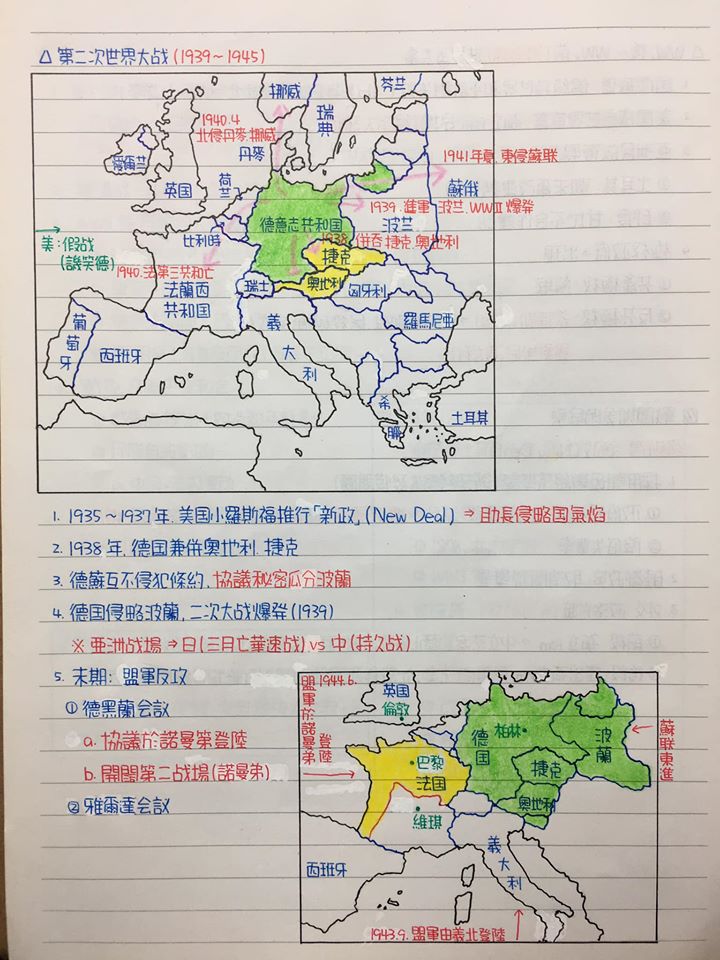 △ 第二次世界大战 (1939~1945)
挪威
芬兰
瑞典
1940.4
北侵丹麥.挪威
丹麥
愛爾兰
英国
荷兰
1941年夏.東侵蘇联
蘇俄
1939.進軍波兰.WWⅡ爆発
波兰
德意志共和国
1938.併吞捷克.奧地利
捷克
美:假战
(譏笑德)
比利時
1940.法第三共和亡
法蘭西
共和国
瑞士
奧地利
匈牙利
羅馬尼亞
義大利
葡萄牙
西班牙
希臘
土耳其
1. 1935~1937年.美国小羅斯福推行「新政」(New Deal) ⇒ 助長侵略国氣焰
2. 1938年.德国兼併奧地利.捷克
3. 德蘇互不侵犯條約.協議秘密瓜分波蘭
4. 德国侵略波蘭.二次大战爆発(1939)
※ 亜洲战場 ⇒ 日(三月亡華速战) vs 中(持久战)
5. 末期:盟軍反攻
① 德黑蘭会議
a. 協議於諾曼第登陸
b. 開闢第二战場(諾曼弟)
② 雅爾達会議
1944.6.
盟軍於諾曼弟登陸
英国
倫敦
柏林
德国
波蘭
蘇联東進
巴黎
法国
捷克
奧地利
維琪
義大利
西班牙
1943.9.盟軍由義北登陸